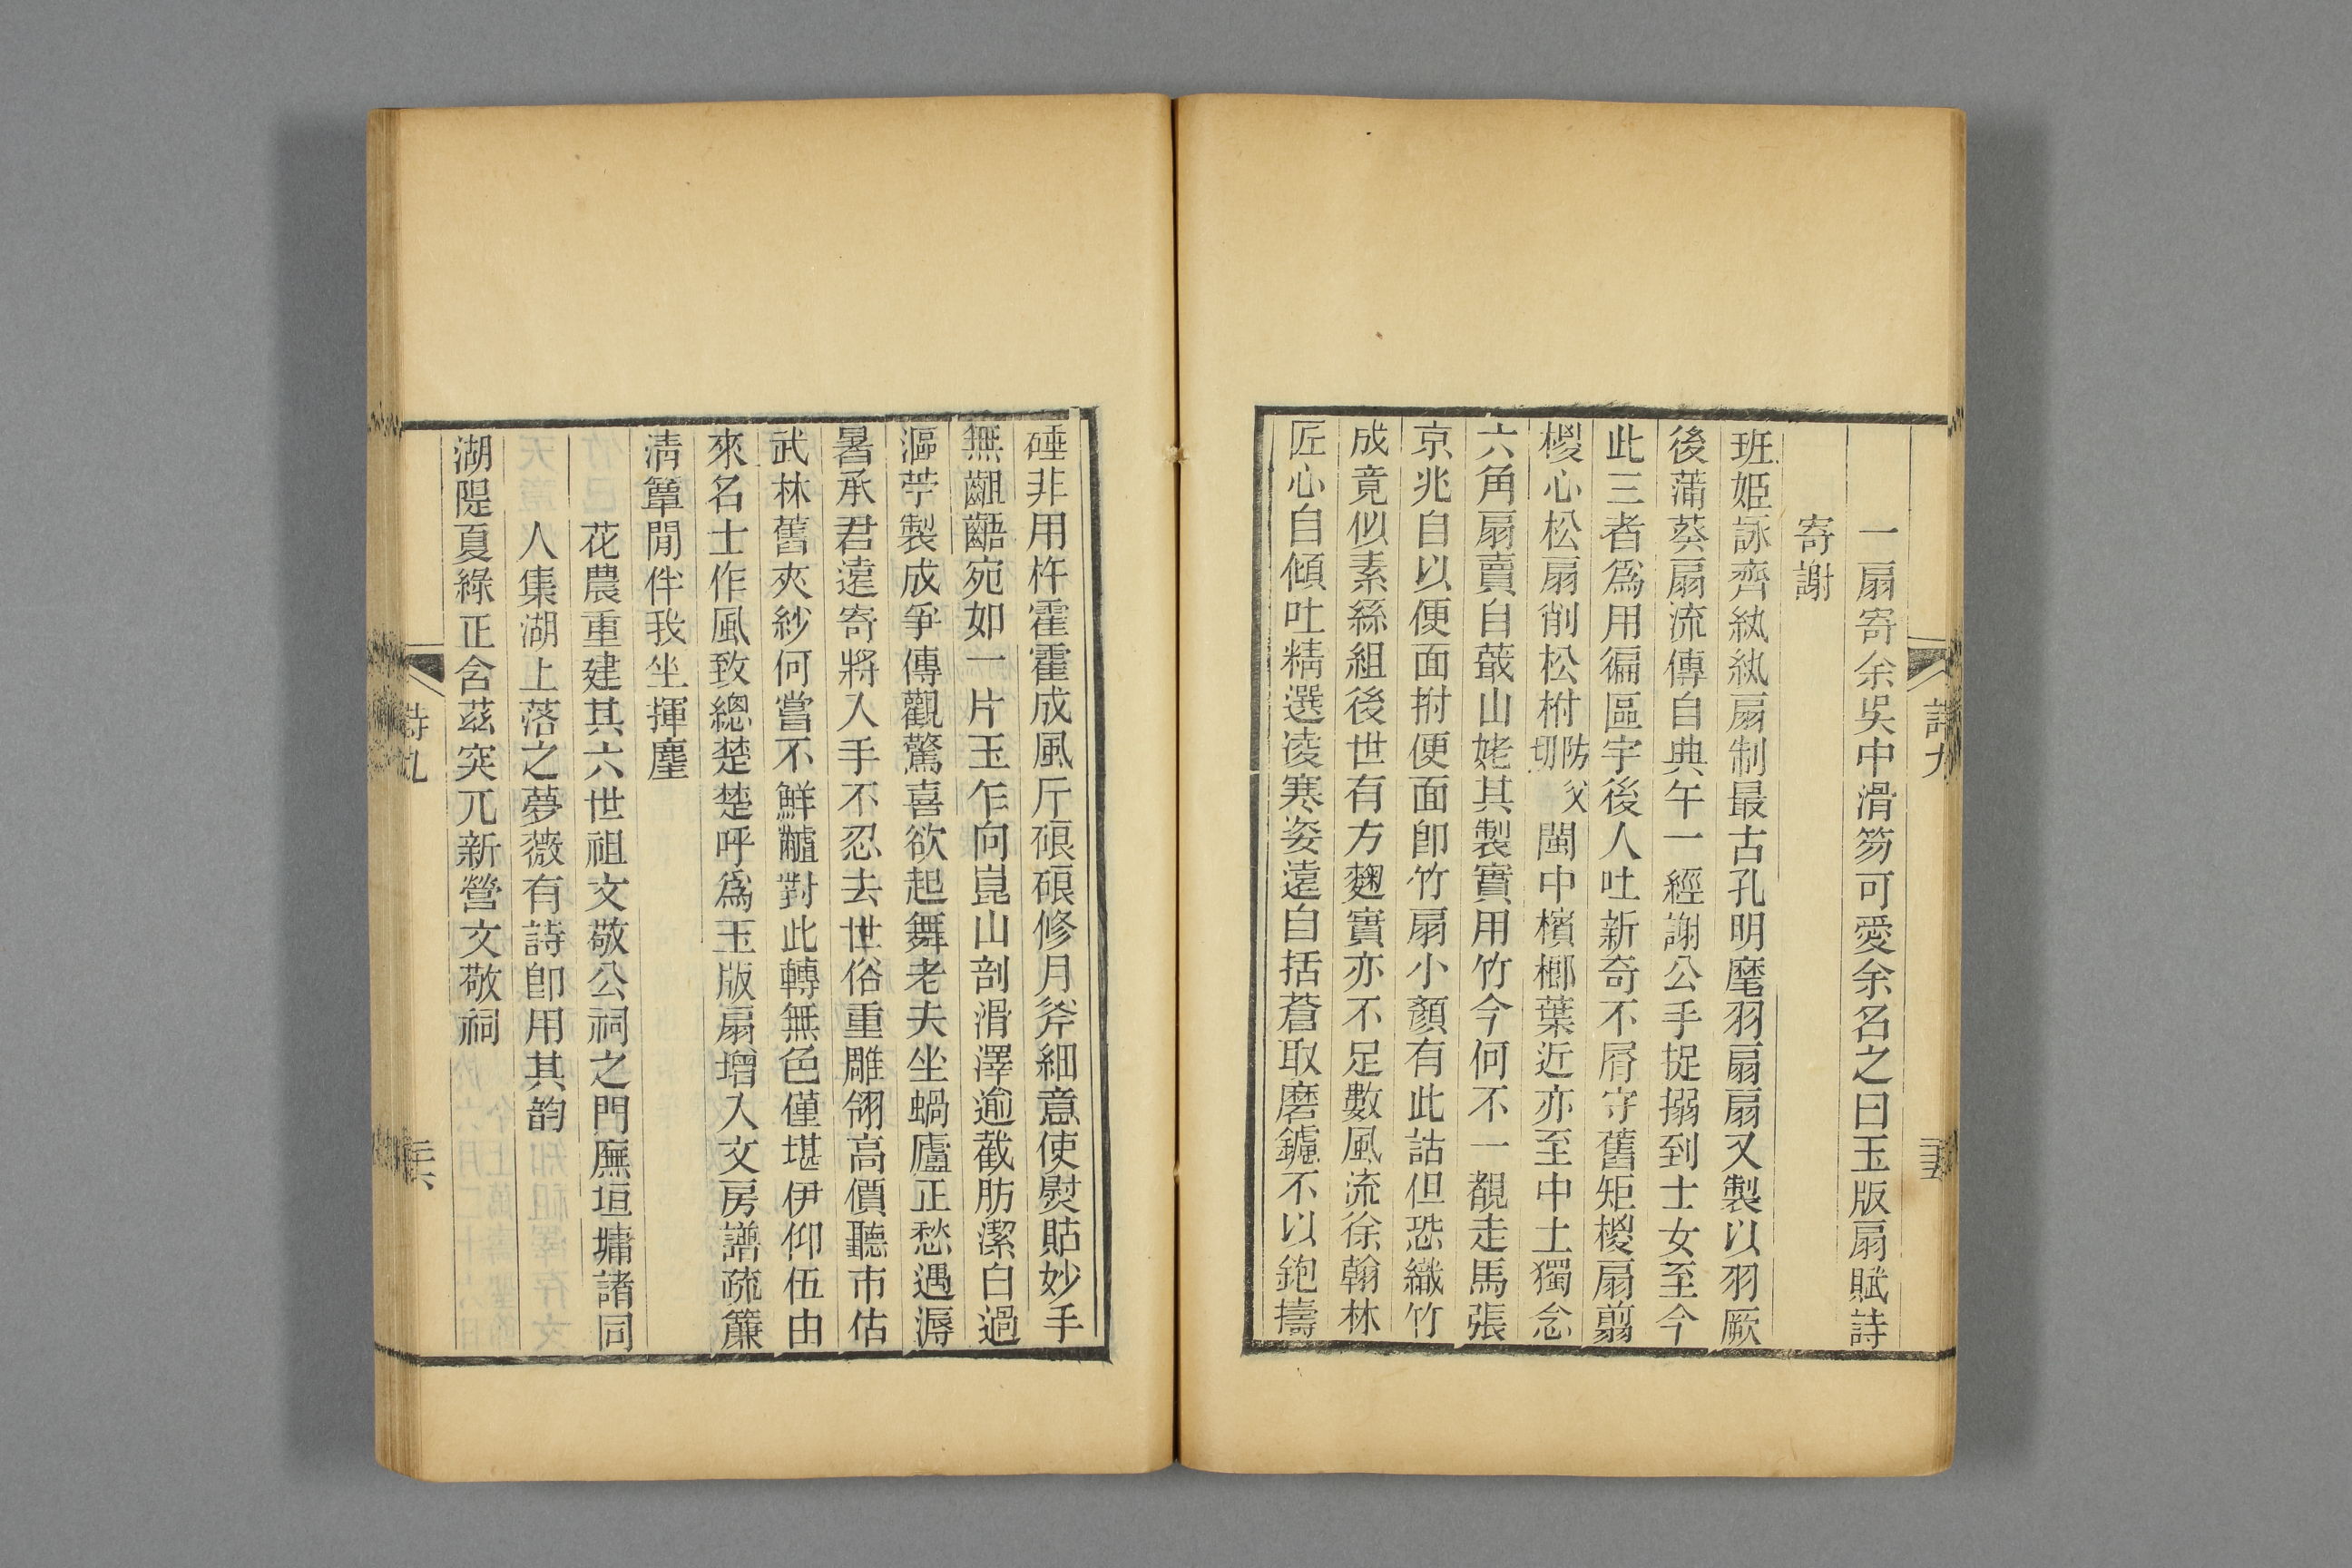 詩九
一扇寄余吳中滑笏可愛余名之曰玉版扇賦詩
寄謝
班姬詠齊紈紈扇制最古孔明麾羽扇扇又製以羽厥
後蒲葵扇流傳自典午一經謝公手捉搦到士女至今
此三者爲用徧區宇後人吐新奇不屑守舊矩椶扇翦
椶心松扇削松柎防父切閩中檳榔葉近亦至中土獨念
六角扇賣自蕺山姥其製實用竹今何不一覩走馬張
京兆自以便面拊便面卽竹扇小顏有此詁但恐織竹
成竟似素絲組後世有方麴實亦不足數風流徐翰林
匠心自傾吐精選凌寒姿遠自括蒼取磨鑢不以鉋擣
硾非用杵霍霍成風斤硠硠修月斧細意使熨貼妙手
無齟齬宛如一片玉乍向崑山剖滑澤逾截肪潔白過
漚苧製成爭傳觀驚喜欲起舞老夫坐蝸廬正愁遇溽
暑承君遠寄將入手不忍去世俗重雕翎高價聽市估
武林舊夾紗何嘗不鮮黸對此轉無色僅堪伊仰伍由
來名士作風致總楚楚呼爲玉版扇增入文房譜疏簾
淸簟閒伴我坐揮麈
花農重建其六世祖文敬公祠之門廡垣墉諸同
人集湖上落之夢薇有詩卽用其韵
湖隄夏綠正含茲突兀新營文敬祠
詩九